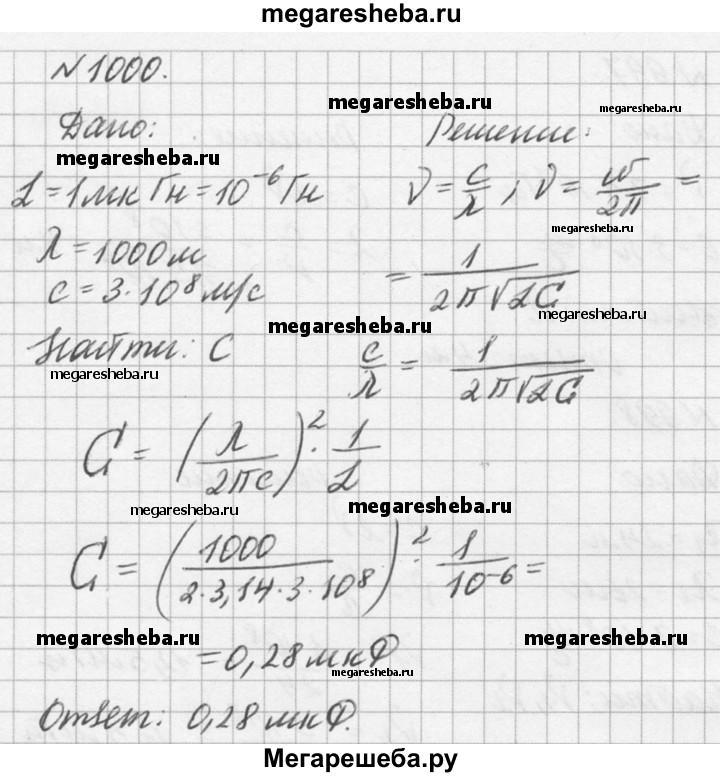 megaresheba.ru
№1000.
megaresheba.ru
megaresheba.ru
Дано: Решение:
megaresheba.ru
L = 1 мкГн = 10⁻⁶ Гн ν = c/λ ; ν = ω/2π =
λ = 1000 м
= 1/(2π√LC)
c = 3·10⁸ м/с
megaresheba.ru
megaresheba.ru
Найти: C
c/λ = 1/(2π√LC)
megaresheba.ru
megaresheba.ru
C = (λ/2πc)² · 1/L
megaresheba.ru
megaresheba.ru
C = (1000/(2·3,14·3·10⁸))² · 1/10⁻⁶ =
megaresheba.ru
megaresheba.ru
= 0,28 мкФ
megaresheba.ru
Ответ: 0,28 мкФ.
megaresheba.ru
Мегарешеба.ру